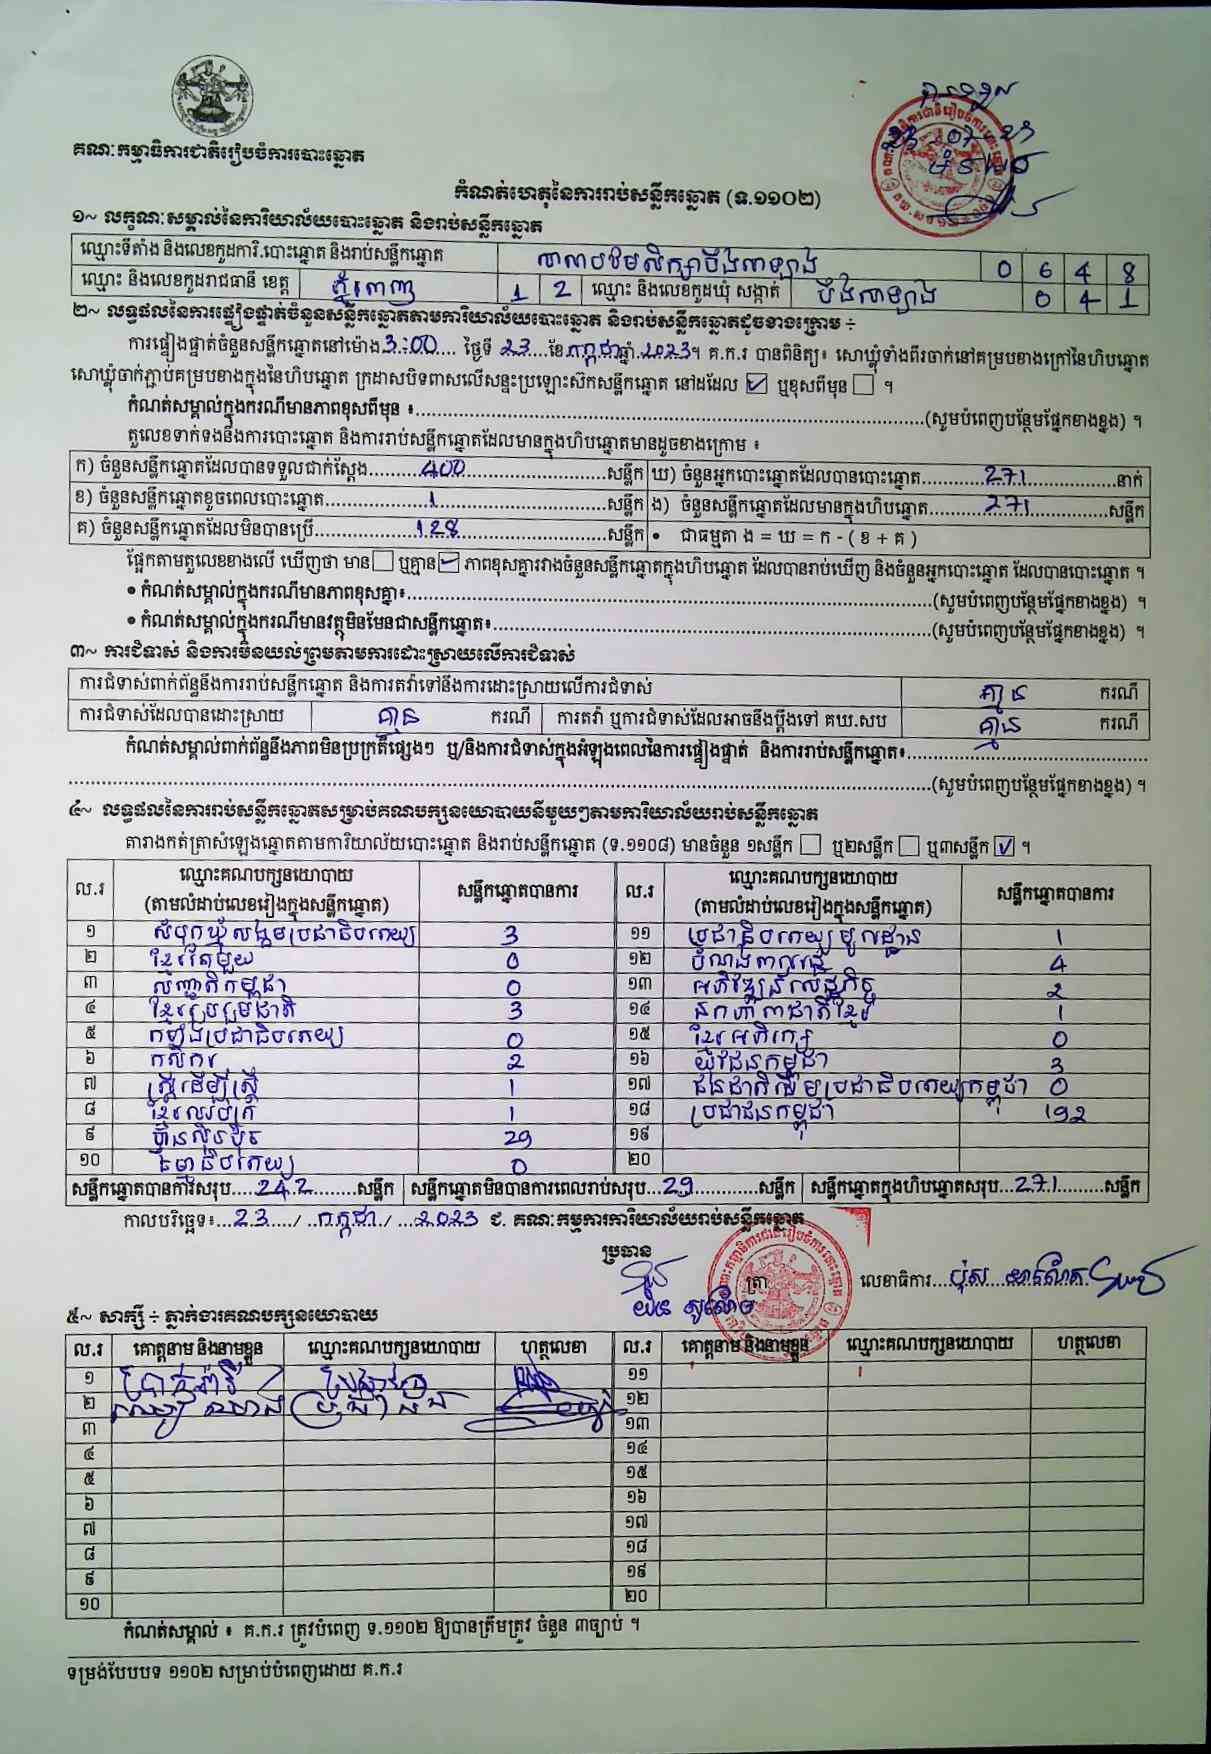 គណៈកម្មាធិការជាតិរៀបចំការបោះឆ្នោត
23-07-23
កំណត់ហេតុនៃការរាប់សន្លឹកឆ្នោត (ទ.១១០២)
១~ លក្ខណៈសម្គាល់នៃការិយាល័យបោះឆ្នោត និងរាប់សន្លឹកឆ្នោត
ឈ្មោះទីតាំង និងលេខកូដការិ.បោះឆ្នោត និងរាប់សន្លឹកឆ្នោត សាលាបឋមសិក្សាបឹងសាឡាង 0 6 4 8
ឈ្មោះ និងលេខកូដរាជធានី ខេត្ត ភ្នំពេញ 1 2 ឈ្មោះ និងលេខកូដឃុំ សង្កាត់ បឹងសាឡាង 0 4 1
២~ លទ្ធផលនៃការផ្ទៀងផ្ទាត់ចំនួនសន្លឹកឆ្នោតតាមការិយាល័យបោះឆ្នោត និងរាប់សន្លឹកឆ្នោតដូចខាងក្រោម ÷
ការផ្ទៀងផ្ទាត់ចំនួនសន្លឹកឆ្នោតនៅម៉ោង 3:00 ថ្ងៃទី 23 ខែ កក្កដា ឆ្នាំ 2023។ គ.ក.រ បានពិនិត្យ៖ សោឃ្លុំទាំងពីរចាក់នៅគម្របខាងក្រៅនៃហិបឆ្នោត
សោឃ្លុំចាក់ភ្ជាប់គម្របខាងក្នុងនៃហិបឆ្នោត ក្រដាសបិទពាសលើសន្ទះប្រឡោះស៊កសន្លឹកឆ្នោត នៅដដែល ☑ ឬខុសពីមុន ☐ ។
កំណត់សម្គាល់ក្នុងករណីមានភាពខុសពីមុន ៖ (សូមបំពេញបន្ថែមផ្នែកខាងខ្នង) ។
តួលេខទាក់ទងនឹងការបោះឆ្នោត និងការរាប់សន្លឹកឆ្នោតដែលមានក្នុងហិបឆ្នោតមានដូចខាងក្រោម ៖
ក) ចំនួនសន្លឹកឆ្នោតដែលបានទទួលជាក់ស្តែង 400 សន្លឹក ឃ) ចំនួនអ្នកបោះឆ្នោតដែលបានបោះឆ្នោត 271 នាក់
ខ) ចំនួនសន្លឹកឆ្នោតខូចពេលបោះឆ្នោត 1 សន្លឹក ង) ចំនួនសន្លឹកឆ្នោតដែលមានក្នុងហិបឆ្នោត 271 សន្លឹក
គ) ចំនួនសន្លឹកឆ្នោតដែលមិនបានប្រើ 128 សន្លឹក • ជាធម្មតា ង = ឃ = ក - ( ខ + គ )
ផ្អែកតាមតួលេខខាងលើ ឃើញថា មាន ☐ ឬគ្មាន ☑ ភាពខុសគ្នារវាងចំនួនសន្លឹកឆ្នោតក្នុងហិបឆ្នោត ដែលបានរាប់ឃើញ និងចំនួនអ្នកបោះឆ្នោត ដែលបានបោះឆ្នោត ។
• កំណត់សម្គាល់ក្នុងករណីមានភាពខុសគ្នា៖ (សូមបំពេញបន្ថែមផ្នែកខាងខ្នង) ។
• កំណត់សម្គាល់ក្នុងករណីមានវត្ថុមិនមែនជាសន្លឹកឆ្នោត៖ (សូមបំពេញបន្ថែមផ្នែកខាងខ្នង) ។
៣~ ការជំទាស់ និងការមិនយល់ព្រមតាមការដោះស្រាយលើការជំទាស់
ការជំទាស់ពាក់ព័ន្ធនឹងការរាប់សន្លឹកឆ្នោត និងការតវ៉ាទៅនឹងការដោះស្រាយលើការជំទាស់ គ្មាន ករណី
ការជំទាស់ដែលបានដោះស្រាយ គ្មាន ករណី ការតវ៉ា ឬការជំទាស់ដែលអាចនឹងប្តឹងទៅ គឃ.សប គ្មាន ករណី
កំណត់សម្គាល់ពាក់ព័ន្ធនឹងភាពមិនប្រក្រតីផ្សេងៗ ឬ/និងការជំទាស់ក្នុងអំឡុងពេលនៃការផ្ទៀងផ្ទាត់ និងការរាប់សន្លឹកឆ្នោត៖
(សូមបំពេញបន្ថែមផ្នែកខាងខ្នង) ។
៤~ លទ្ធផលនៃការរាប់សន្លឹកឆ្នោតសម្រាប់គណបក្សនយោបាយនីមួយៗតាមការិយាល័យរាប់សន្លឹកឆ្នោត
តារាងកត់ត្រាសំឡេងឆ្នោតតាមការិយាល័យបោះឆ្នោត និងរាប់សន្លឹកឆ្នោត (ទ.១១០៨) មានចំនួន ១សន្លឹក ☐ ឬ២សន្លឹក ☐ ឬ៣សន្លឹក ☑ ។
ល.រ ឈ្មោះគណបក្សនយោបាយ (តាមលំដាប់លេខរៀងក្នុងសន្លឹកឆ្នោត) សន្លឹកឆ្នោតបានការ ល.រ ឈ្មោះគណបក្សនយោបាយ (តាមលំដាប់លេខរៀងក្នុងសន្លឹកឆ្នោត) សន្លឹកឆ្នោតបានការ
១ សំបុកឃ្មុំសង្គមប្រជាធិបតេយ្យ 3 ១១ ប្រជាធិបតេយ្យមូលដ្ឋាន 1
២ ខ្មែរតែមួយ 0 ១២ បំណងពលរដ្ឋ 4
៣ សញ្ជាតិកម្ពុជា 0 ១៣ អភិវឌ្ឍន៍សេដ្ឋកិច្ច 2
៤ ខ្មែររួបរួមជាតិ 3 ១៤ ឯកភាពជាតិខ្មែរ 1
៥ កម្លាំងប្រជាធិបតេយ្យ 0 ១៥ ខ្មែរអភិរក្ស 0
៦ កសិករ 2 ១៦ យុវជនកម្ពុជា 3
៧ ស្ត្រីដើម្បីស្ត្រី 1 ១៧ ជនជាតិដើមប្រជាធិបតេយ្យកម្ពុជា 0
៨ ខ្មែរឈប់ក្រ 1 ១៨ ប្រជាជនកម្ពុជា 192
៩ ហ្វ៊ុនស៊ិនប៉ិច 29 ១៩
១០ ធម្មាធិបតេយ្យ 0 ២០
សន្លឹកឆ្នោតបានការសរុប 242 សន្លឹក សន្លឹកឆ្នោតមិនបានការពេលរាប់សរុប 29 សន្លឹក សន្លឹកឆ្នោតក្នុងហិបឆ្នោតសរុប 271 សន្លឹក
កាលបរិច្ឆេទ៖ 23 / កក្កដា / 2023 ជ. គណៈកម្មការការិយាល័យរាប់សន្លឹកឆ្នោត
ប្រធាន ត្រា លេខាធិការ
៥~ សាក្សី ÷ ភ្នាក់ងារគណបក្សនយោបាយ
ល.រ គោត្តនាម និងនាមខ្លួន ឈ្មោះគណបក្សនយោបាយ ហត្ថលេខា ល.រ គោត្តនាម និងនាមខ្លួន ឈ្មោះគណបក្សនយោបាយ ហត្ថលេខា
១ ១១
២ ១២
៣ ១៣
៤ ១៤
៥ ១៥
៦ ១៦
៧ ១៧
៨ ១៨
៩ ១៩
១០ ២០
កំណត់សម្គាល់ ៖ គ.ក.រ ត្រូវបំពេញ ទ.១១០២ ឱ្យបានត្រឹមត្រូវ ចំនួន ៣ច្បាប់ ។
ទម្រង់បែបបទ ១១០២ សម្រាប់បំពេញដោយ គ.ក.រ